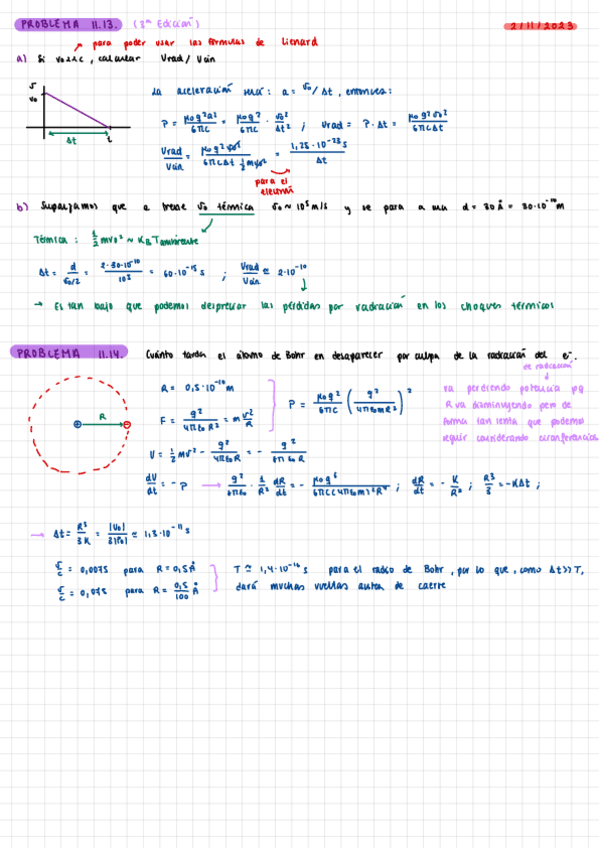 PROBLEMA 11.13. (3ª Edición)
2/11/2023
para poder usar las fórmulas de Lienard
a) Si v₀<<c, calcular Urad / Ucin
v
v₀
Δt
t
La aceleración será: a = v₀/Δt, entonces:
P = μ₀q²a²/6πc = μ₀q²/6πc · v₀²/Δt² ; Urad = P·Δt = μ₀q²v₀²/6πcΔt
Urad/Ucin = μ₀q²v₀²/6πcΔt ½mv₀² = 1,25·10⁻²³s/Δt
para el electrón
b) Supongamos que e tiene v₀ térmica v₀ ~ 10⁵ m/s y se para a una d = 30 Å = 30·10⁻¹⁰ m
Térmica: ½mv₀² ~ K_B Tambiente
Δt = d/v₀/2 = 2·30·10⁻¹⁰/10⁵ = 60·10⁻¹⁵ s ; Urad/Ucin ≃ 2·10⁻¹⁰
→ Es tan bajo que podemos despreciar las pérdidas por radiación en los choques térmicos
PROBLEMA 11.14. Cuánto tarda el átomo de Bohr en desaparecer por culpa de la radiación del e⁻.
R
R = 0,5·10⁻¹⁰ m
F = q²/4πε₀R² = m v²/R
P = μ₀q²/6πc (q²/4πε₀mR²)²
de radiación
va perdiendo potencia pq
R va disminuyendo pero de
forma tan lenta que podemos
seguir considerando circunferencias
U = ½mv² - q²/4πε₀R = - q²/8πε₀R
dU/dt = - P → q²/8πε₀ · 1/R² dR/dt = - μ₀q⁶/6πc(4πε₀m)²R⁴ ; dR/dt = - K/R² ; R³/3 = -KΔt ;
→ Δt = R³/3K = |U₀|/3|P₀| ≃ 1,3·10⁻¹¹ s
v/c = 0,0075 para R = 0,5 Å
v/c = 0,075 para R = 0,5/100 Å
T ≃ 1,4·10⁻¹⁶ s para el radio de Bohr, por lo que, como Δt>>T,
dará muchas vueltas antes de caerse